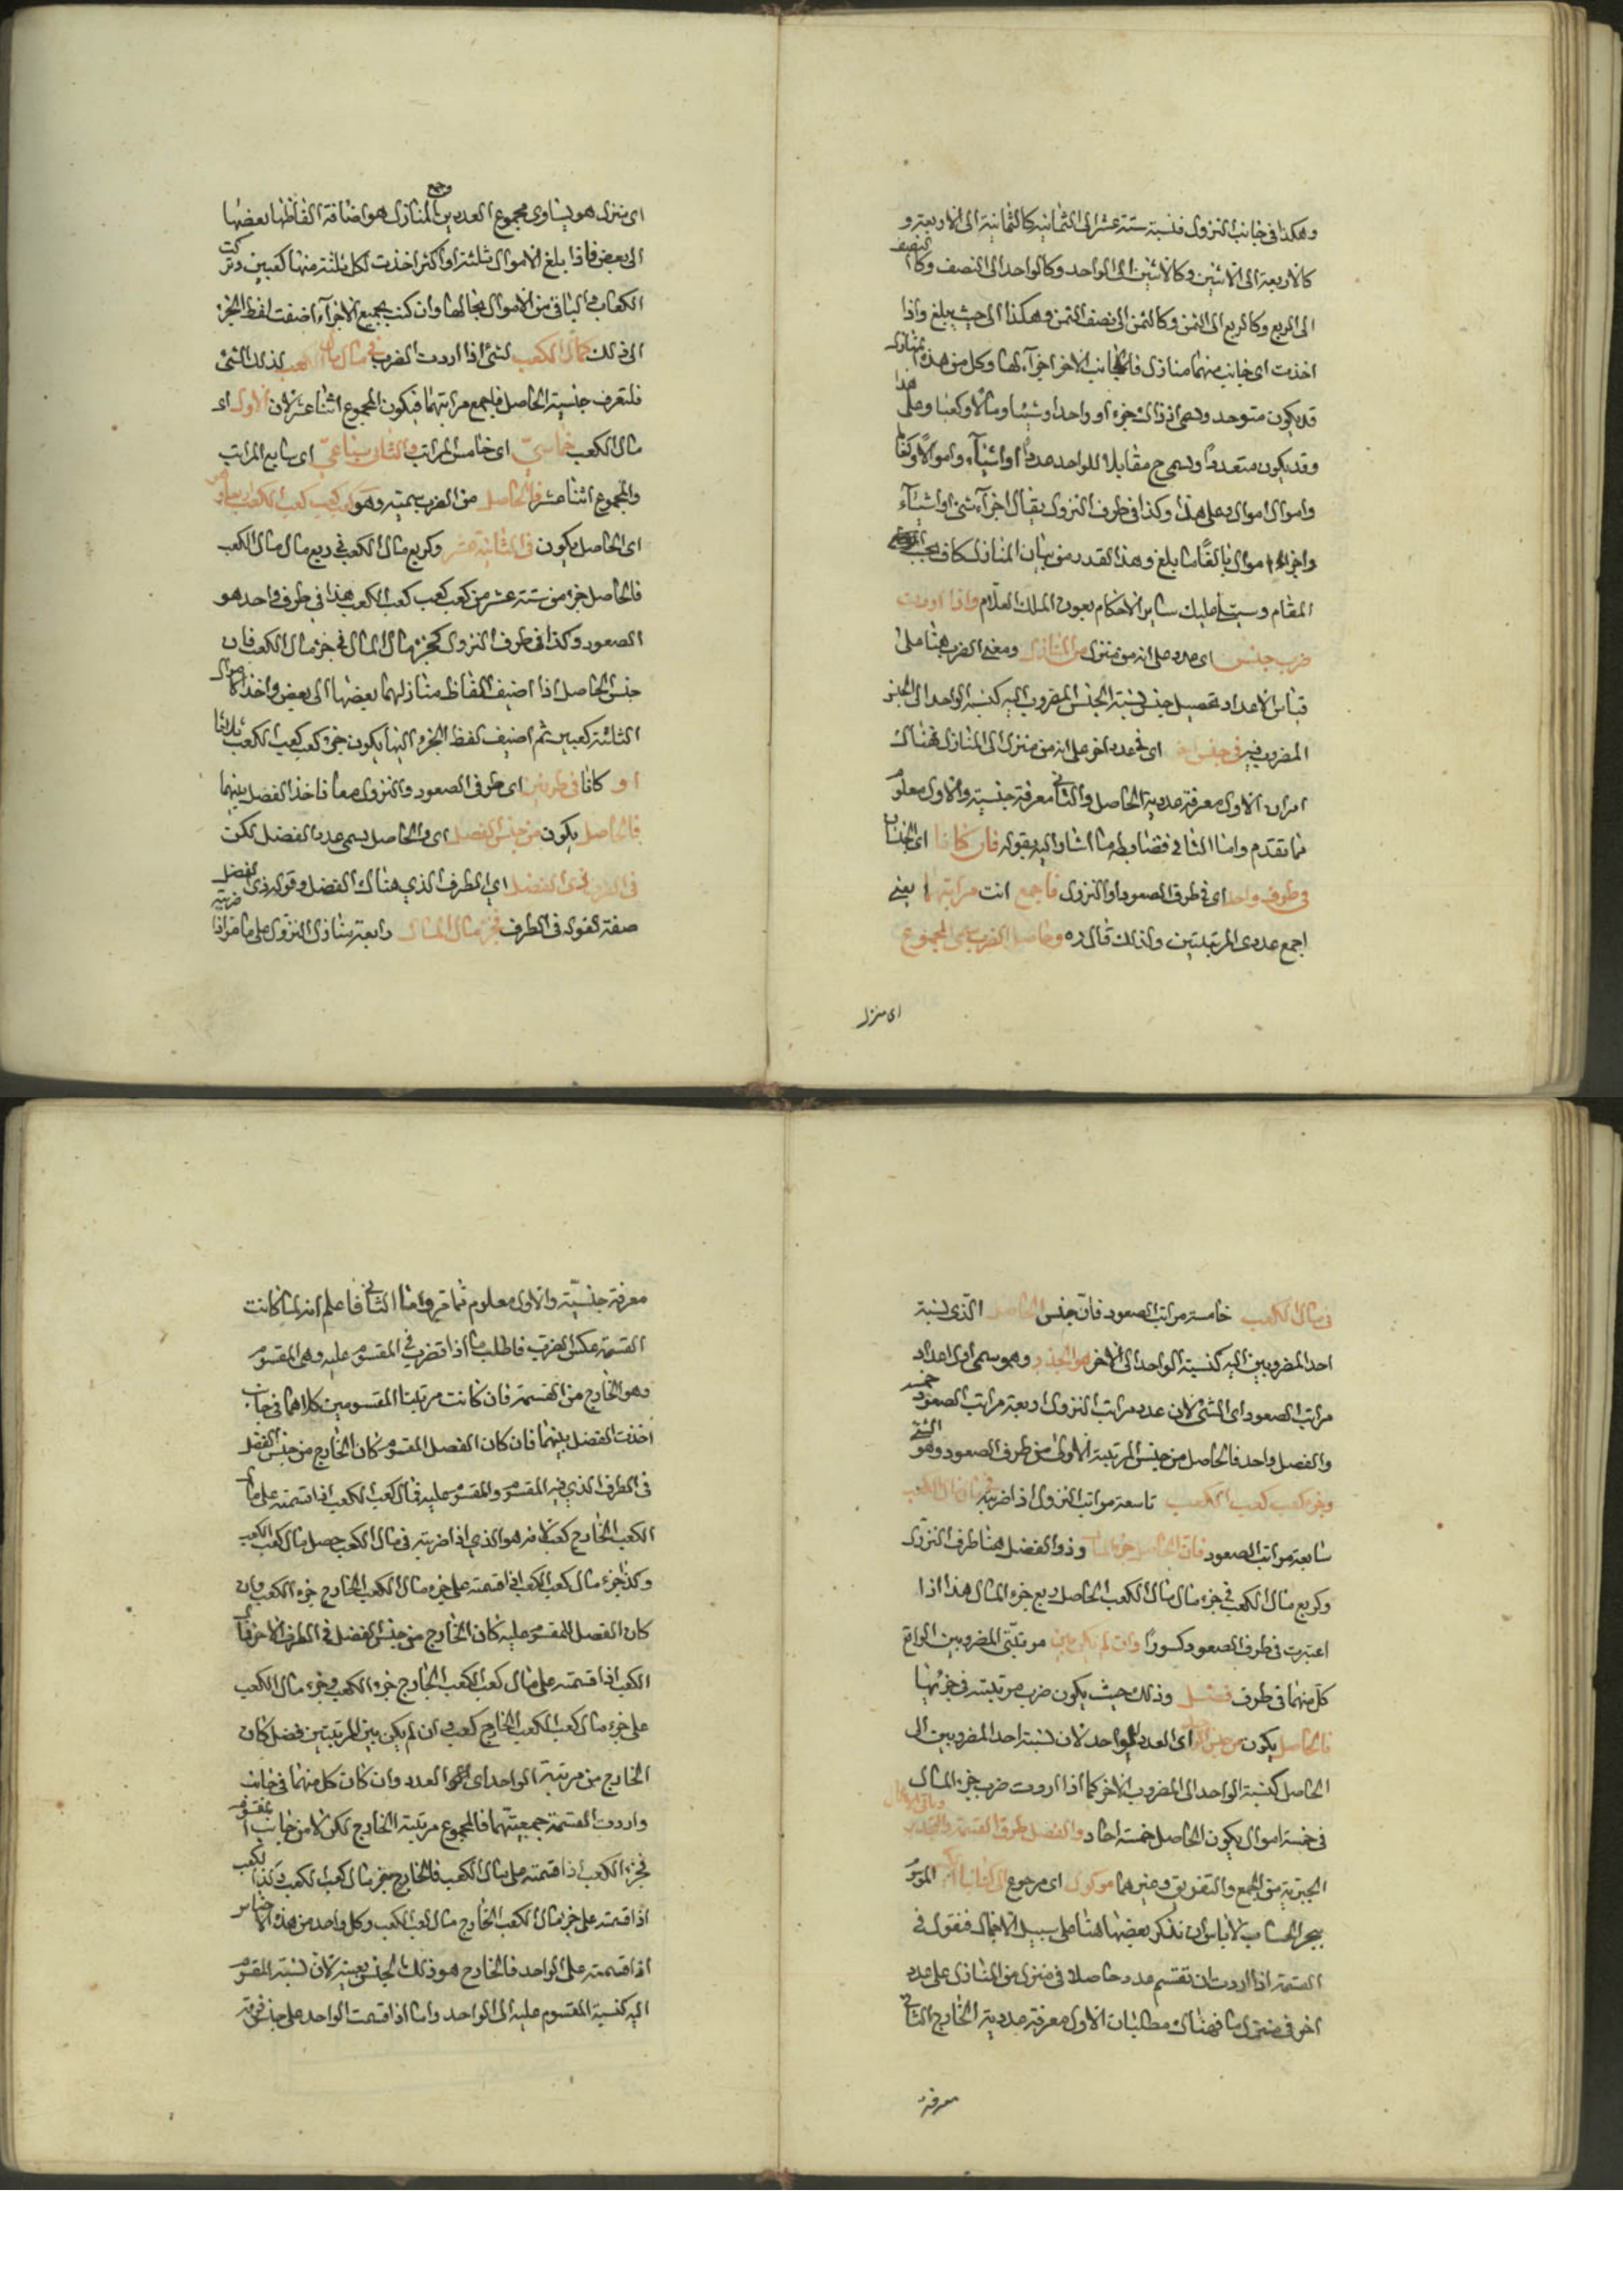 وهكذا في جانب النزول فنسبة ستة عشر الى الثمانية كالثمانية الى الاربعة و
كالاربعة الى الاثنين وكالاثنين الى الواحد وكالواحد الى النصف وكا النصف
الى الربع وكالربع الى الثمن وكالثمن الى نصف الثمن وهكذا الى حيث يبلغ واذا
اخذت اى جانب منهما منازل فالجانب الاخر اجزآء لها وكل من هذه المنازل
قد يكون متوحد ويسمى اذ ذاك جزء او واحدا وشيئا ومالا وكعبا وعلى هذا
وقد يكون متعددا ويسمى ح مقابلا للواحد عددا او اشيآء واموالا وكعابا
واموال اموال وعلى هذا وكذا في طرف النزول يقال اجزآء شئ او اشيآء
واجزاء اموال بالغا ما بلغ وهذا القدر من بيان المنازل كاف بحسب
المقام وسيتلى عليك ساير الاحكام بعون الملك العلام واذا اردت
ضرب جنس اى عدد على انه من منزل من المنازل ومعنى الضرب هيهنا على
قياس الاعداد تحصيل جنس نسبة الجنس المضروب اليه كنسبة الواحد الى الجنس
المضروب فيه في جنس اخر اى في عدد اخر على انه من منزل الى المنازل فهناك
امران الاول معرفة عددية الحاصل والثاني معرفة جنسية والاول معلوم
مما تقدم واما الثاني فضابطه ما اشار اليه بقوله فان كانا اى الجنسان
في طرف واحد اى في طرف الصعود او النزول فاجمع انت مراتبهما يعنى
اجمع عددى المرتبتين ولذلك قال ره وحاصل الضرب سمى المجموع
اى منزل
اى منزل هو يساوى مجموع العددين وجمع المنازل هو اضافة الفاظها بعضها
الى بعض فاذا بلغ الاموال ثلثة او اكثر اخذت لكل ثلثة منها كعبين وتركت
الكعاب والباقي من الاموال بحالها وان كنت بجميع الاجزآء اضفت لفظ الجزء
الى ذلك كمال الكعب لشئ اذا اردت الضرب في مال مال الكعب لذلك الشئ
فلتعرف جنسية الحاصل فاجمع مرتبتهما فيكون المجموع اثنا عشر لان الاول اى
مال الكعب خماسى اى خامس المراتب والثاني سباعى اى سابع المراتب
والمجموع اثنا عشر فالحاصل من الضرب سميه وهو كعب كعب كعب الكعب
اى الحاصل يكون في الثانية عشر وكربع مال الكعب في ربع مال مال الكعب
فالحاصل جزء من ستة عشر من كعب كعب كعب الكعب هذا في طرف واحد هو
الصعود وكذا في طرف النزول كجزء مال المال في جزء مال الكعب فان
جنس الحاصل اذا اضيف الفاظ منازلهما بعضها الى بعض واخذ الاموال
الثلثة كعبين ثم اضيف لفظ الجزء اليها يكون جزء كعب كعب الكعب
او كانا في طرفين اى طرفى الصعود والنزول معا فاخذ الفضل بينهما
فالحاصل يكون من جنس الفضل اى والحاصل سمى عدد الفضل لكن
في الطرف ذى الفضل اى الطرف الذي هناك الفضل وقوله ذى الفضل
صفة لقوله في الطرف فجزء مال المال رابعة منازل النزول على ما مر اذا ضربته
في مال الكعب خامسة مراتب الصعود فان جنس الحاصل الذى نسبة
احد المضروبين اليه كنسبة الواحد الى الاخر هو الجذر وهو سمى اول اعداد
مراتب الصعود اى الشئ لان عدد مراتب النزول اربعة مراتب الصعود خمسة
والفضل واحد فالحاصل من جنس المرتبة الاولى من طرف الصعود وهو الشئ
وجزء كعب كعب الكعب تاسعة مراتب النزول اذا ضربته في مال مال الكعب
سابعة مراتب الصعود فان الحاصل جزء المال وذو الفضل هنا طرف النزول
وكربع مال الكعب في جزء مال مال الكعب الحاصل ربع جزء المال هذا اذا
اعتبرت في طرف الصعود كسورا وان لم يكن بين مرتبتى المضروبين الواقع
كل منهما في طرف فضل وذلك حيث يكون ضرب مرتبة في جزئها
فالحاصل يكون من جنس الواحد اى العدد الواحد لان نسبة احد المضروبين الى
الحاصل كنسبة الواحد الى المضروب الاخر كما اذا اردت ضرب جزء المال
في خمسة اموال يكون الحاصل خمسة احاد وتفصيل طرق القسمة والتجذير وباقى الاعمال
الجبرية من الجمع والتفريق وغيرهما موكول اى مرجوع الى كتابنا الكبير الموسوم
ببحر الحساب لا باس ان نذكر بعضها هنا على سبيل الاجمال فنقول في
القسمة اذا اردت ان تقسم عدد حاصلا في منزل من المنازل على عدد
اخر في منزل ما فهناك مطلبان الاول معرفة عددية الخارج الثاني
معرفة
معرفة جنسية والاول معلوم مما مر واما الثاني فاعلم انه لما كانت
القسمة عكس الضرب فاطلب ما اذا تضرب في المقسوم عليه وهى المقسوم
وهو الخارج من القسمة فان كانت مرتبتا المقسومين كلاهما في جانب
اخذت الفضل بينهما فان كان الفضل المقسوم كان الخارج من جنس الفضل
في الطرف الذي فيه المقسوم والمقسوم عليه فمال كعب الكعب اذا قسمته على مال
الكعب الخارج كعب لانه هو الذي اذا ضربته في مال الكعب حصل مال كعب الكعب
وكذا جزء مال كعب الكعب اذا قسمته على جزء مال الكعب الخارج جزء الكعب وان
كان الفضل للمقسوم عليه كان الخارج من جنس الفضل في الطرف الاخر فمال
الكعب اذا قسمته على مال كعب الكعب الخارج جزء الكعب وجزء مال الكعب
على جزء مال كعب الكعب الخارج كعب وان لم يكن بين المرتبتين فضل كان
الخارج من مرتبة الواحد اى العدد وان كان كل منهما في جانب
واردت القسمة جمعيتهما فالمجموع مرتبة الخارج لكن لا من جانب المقسوم
فجزء الكعب اذا قسمته على مال الكعب فالخارج جزء مال كعب الكعب وكذا الكعب
اذا قسمته على جزء مال الكعب الخارج مال كعب الكعب وكل واحد من هذه الاجناس
اذا قسمته على الواحد فالخارج هو ذلك الجنس بعينه لان نسبة المقسوم
اليه كنسبة المقسوم عليه الى الواحد واما اذا قسمت الواحد على جنس